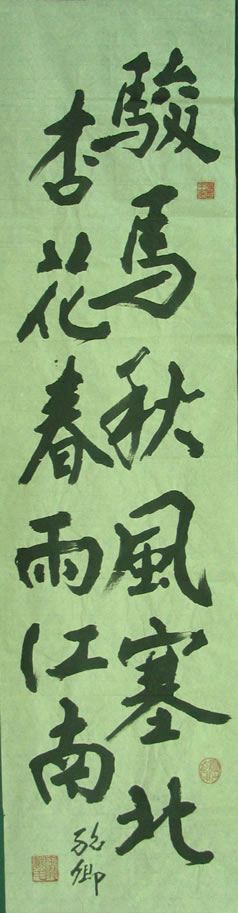 駿馬秋風塞北
杏花春雨江南